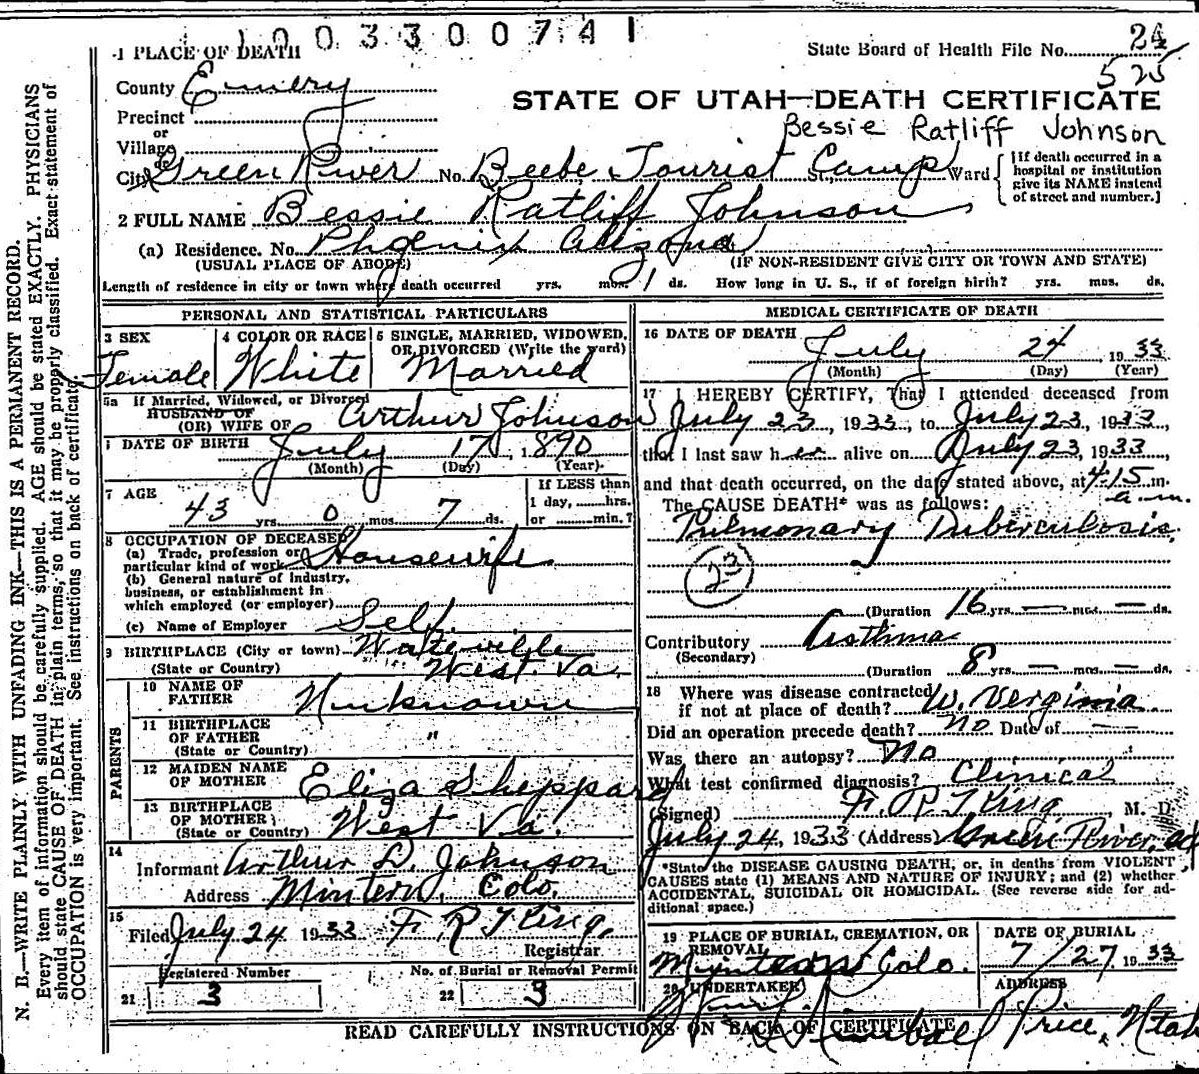 1003300741
1 PLACE OF DEATH
State Board of Health File No. 24
525
County Emery
STATE OF UTAH—DEATH CERTIFICATE
Precinct
or
Village
Bessie Ratliff Johnson
or
City Green River No. Beebe Tourist St., Camp Ward
[If death occurred in a hospital or institution give its NAME instead of street and number.]
2 FULL NAME Bessie Ratliff Johnson
(a) Residence. No. Phoenix Arizona
(USUAL PLACE OF ABODE) (IF NON-RESIDENT GIVE CITY OR TOWN AND STATE)
Length of residence in city or town where death occurred yrs. mos. 1 ds. How long in U. S., if of foreign birth? yrs. mos. ds.
PERSONAL AND STATISTICAL PARTICULARS
3 SEX
Female
4 COLOR OR RACE
White
5 SINGLE, MARRIED, WIDOWED,
OR DIVORCED (Write the word)
Married
5a If Married, Widowed, or Divorced
HUSBAND OF
(OR) WIFE OF Arthur Johnson
DATE OF BIRTH July 17, 1890
(Month) (Day) (Year)
7 AGE
43 yrs. 0 mos. 7 ds.
If LESS than
1 day, hrs.
or min.?
8 OCCUPATION OF DECEASED
(a) Trade, profession or
particular kind of work Housewife
(b) General nature of industry,
business, or establishment in
which employed (or employer)
(c) Name of Employer Self
9 BIRTHPLACE (City or town) Wateville
(State or Country) West Va.
PARENTS
10 NAME OF
FATHER Unknown
11 BIRTHPLACE
OF FATHER "
(State or Country)
12 MAIDEN NAME
OF MOTHER Eliza Sheppard
13 BIRTHPLACE
OF MOTHER
(State or Country) West Va.
14
Informant Arthur D. Johnson
Address Mintern, Colo.
15
Filed July 24 1933 F. R. T King,
Registrar.
Registered Number
21 3
No. of Burial or Removal Permit
22 3
MEDICAL CERTIFICATE OF DEATH
16 DATE OF DEATH July 24, 1933
(Month) (Day) (Year)
17 I HEREBY CERTIFY, That I attended deceased from
July 23, 1933, to July 23, 1933,
that I last saw her alive on July 23, 1933
and that death occurred, on the date stated above, at 4-15 m.
a.m.
The CAUSE DEATH* was as follows:
Pulmonary Tuberculosis.
23
(Duration 16 yrs. — mos. — ds.
Contributory Asthma
(Secondary)
(Duration 8 yrs. — mos. — ds.
18 Where was disease contracted
if not at place of death? W. Verginia
Did an operation precede death? no Date of —
Was there an autopsy? No
What test confirmed diagnosis? Clinical
(Signed) F. R. T King, M. D.
July 24, 1933 (Address) Green River,
*State the DISEASE CAUSING DEATH, or, in deaths from VIOLENT
CAUSES state (1) MEANS AND NATURE OF INJURY; and (2) whether
ACCIDENTAL, SUICIDAL OR HOMICIDAL. (See reverse side for ad-
ditional space.)
19 PLACE OF BURIAL, CREMATION, OR
REMOVAL
Colo.
DATE OF BURIAL
7/27 1933
20 UNDERTAKER
ADDRESS
Price, Utah
READ CAREFULLY INSTRUCTIONS ON BACK OF CERTIFICATE
N. B.—WRITE PLAINLY WITH UNFADING INK—THIS IS A PERMANENT RECORD.
Every item of information should be carefully supplied. AGE should be stated EXACTLY. PHYSICIANS
should state CAUSE OF DEATH in plain terms, so that it may be properly classified. Exact statement of
OCCUPATION is very important. See instructions on back of certificate.